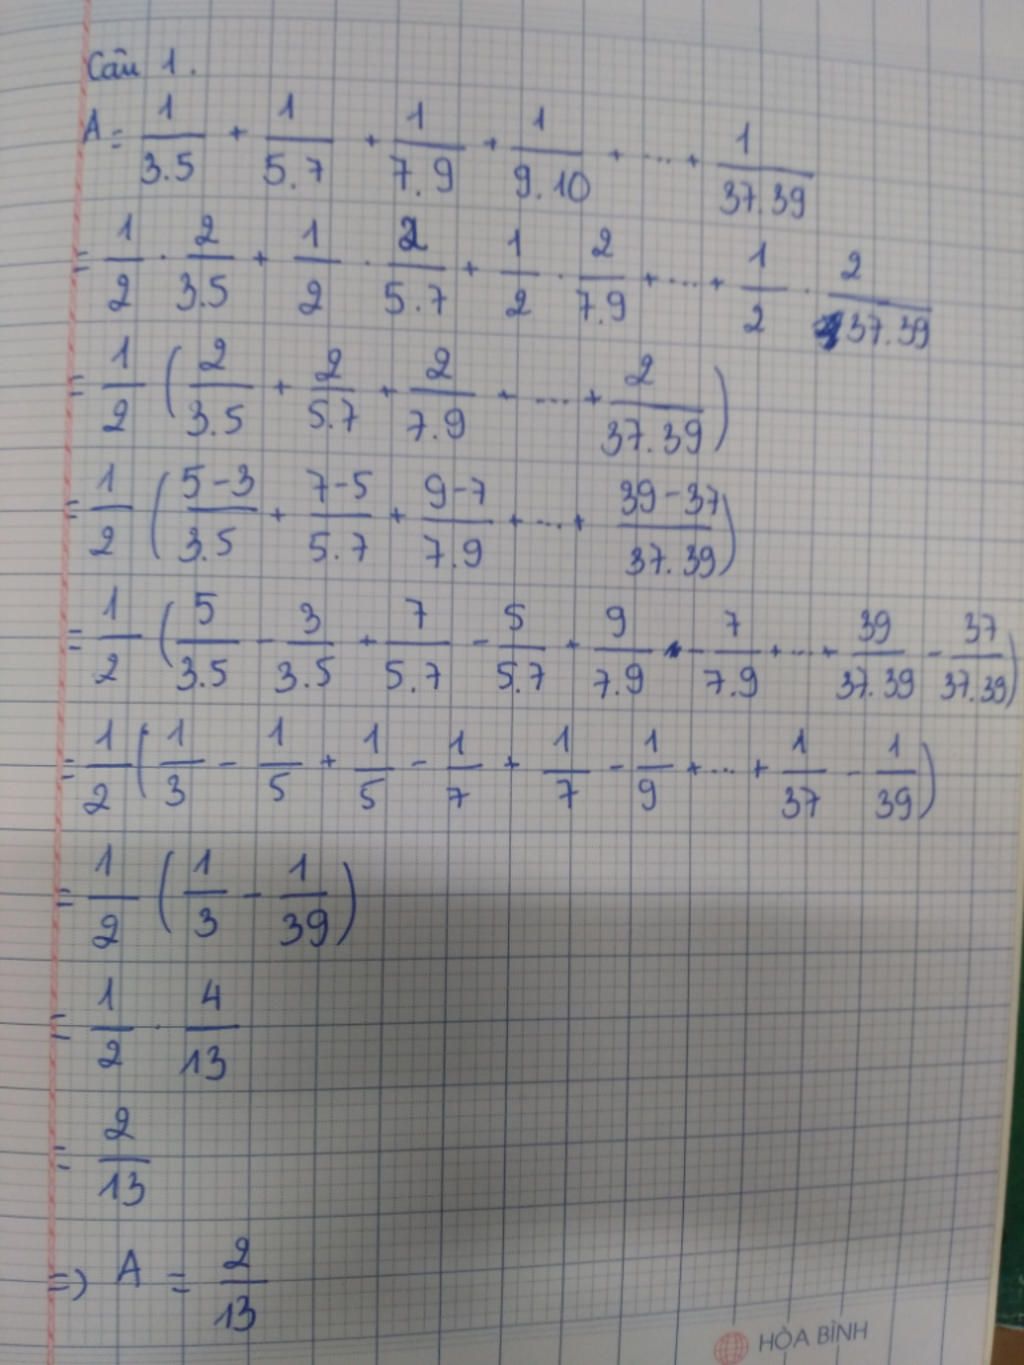 Câu 1.
A = 1/3.5 + 1/5.7 + 1/7.9 + 1/9.10 + ... + 1/37.39
= 1/2 . 2/3.5 + 1/2 . 2/5.7 + 1/2 . 2/7.9 + ... + 1/2 . 2/37.39
= 1/2 (2/3.5 + 2/5.7 + 2/7.9 + ... + 2/37.39)
= 1/2 (5-3/3.5 + 7-5/5.7 + 9-7/7.9 + ... + 39-37/37.39)
= 1/2 (5/3.5 - 3/3.5 + 7/5.7 - 5/5.7 + 9/7.9 - 7/7.9 + ... + 39/37.39 - 37/37.39)
= 1/2 (1/3 - 1/5 + 1/5 - 1/7 + 1/7 - 1/9 + ... + 1/37 - 1/39)
= 1/2 (1/3 - 1/39)
= 1/2 . 4/13
= 2/13
=> A = 2/13
HÒA BÌNH